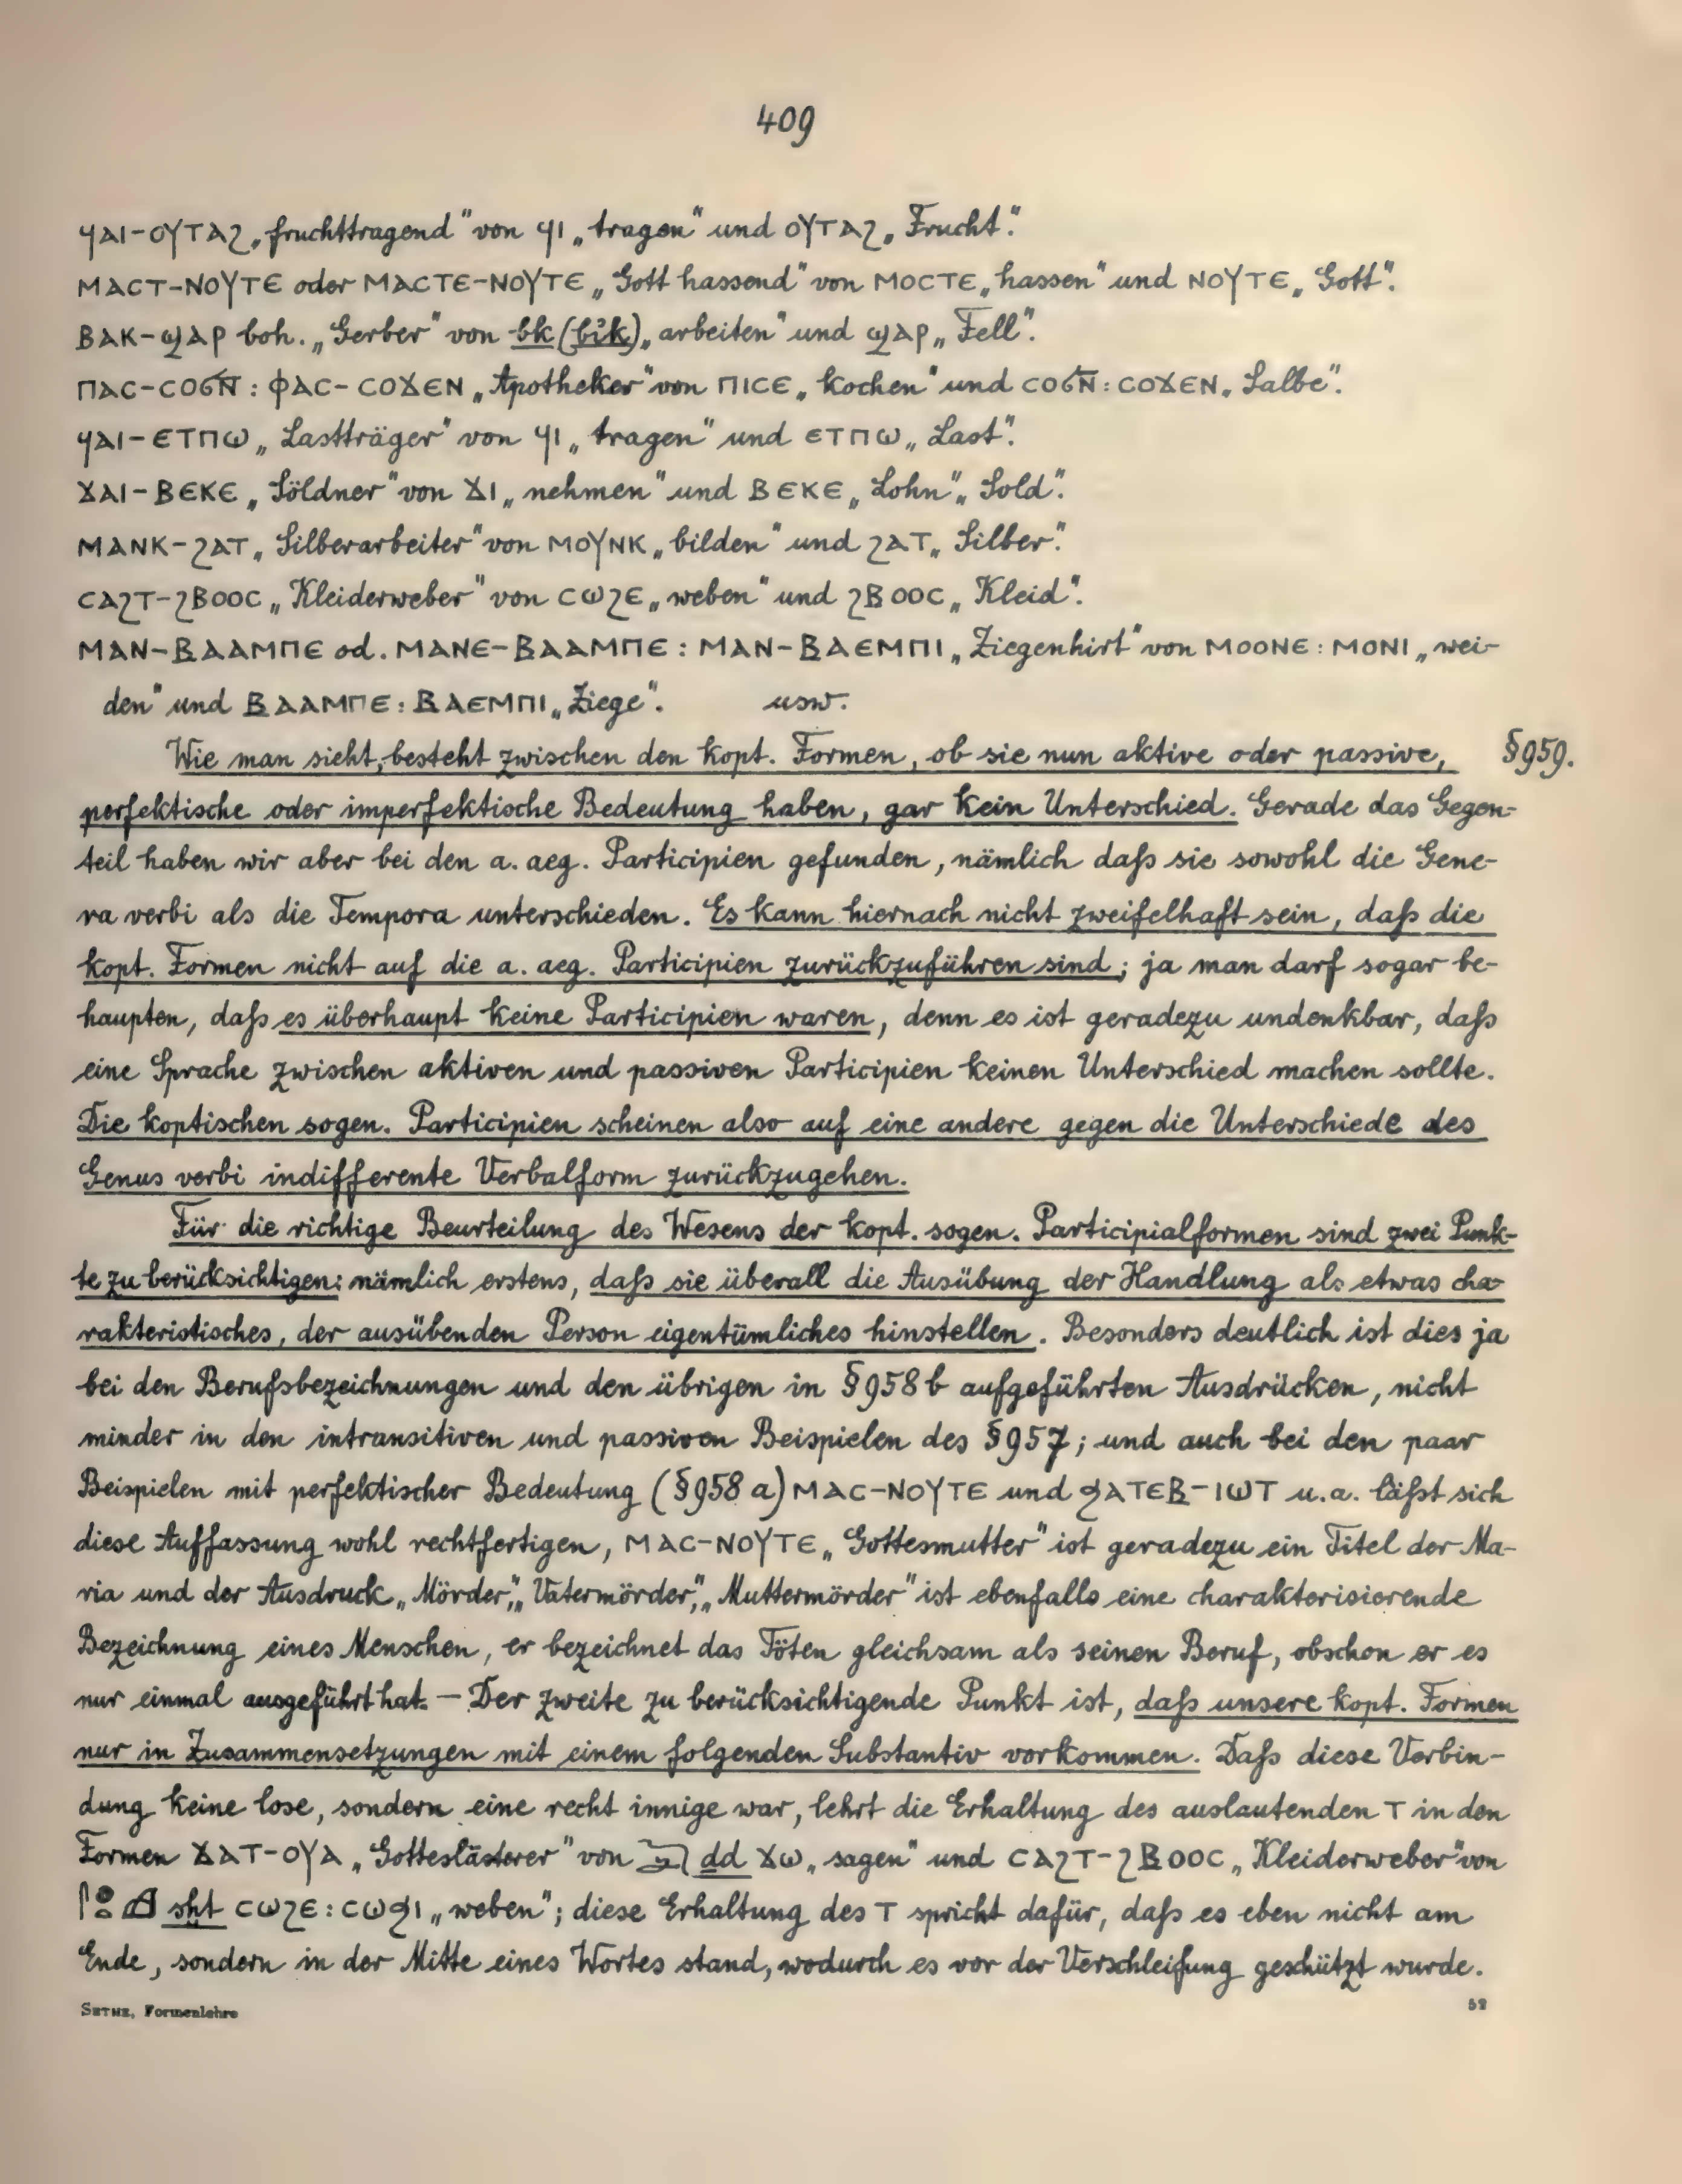 409
ϥⲁⲓ-ⲟⲩⲧⲁϩ „fruchttragend“ von ϥⲓ „tragen“ und ⲟⲩⲧⲁϩ „Frucht“.
ⲙⲁⲥⲧ-ⲛⲟⲩⲧⲉ oder ⲙⲁⲥⲧⲉ-ⲛⲟⲩⲧⲉ „Gott hassend“ von ⲙⲟⲥⲧⲉ „hassen“ und ⲛⲟⲩⲧⲉ „Gott“.
ⲃⲁⲕ-ϣⲁⲣ boh. „Gerber“ von bk (bꜣk) „arbeiten“ und ϣⲁⲣ „Fell“.
ⲡⲁⲥ-ⲥⲟϭⲛ̄ : ⲫⲁⲥ-ⲥⲟϫⲉⲛ „Apotheker“ von ⲡⲓⲥⲉ „kochen“ und ⲥⲟϭⲛ̄ : ⲥⲟϫⲉⲛ „Salbe“.
ϥⲁⲓ-ⲉⲧⲡⲱ „Lastträger“ von ϥⲓ „tragen“ und ⲉⲧⲡⲱ „Last“.
ϫⲁⲓ-ⲃⲉⲕⲉ „Söldner“ von ϫⲓ „nehmen“ und ⲃⲉⲕⲉ „Lohn“, „Sold“.
ⲙⲁⲛⲕ-ϩⲁⲧ „Silberarbeiter“ von ⲙⲟⲩⲛⲕ „bilden“ und ϩⲁⲧ „Silber“.
ⲥⲁϩⲧ-ϩⲃⲟⲟⲥ „Kleiderweber“ von ⲥⲱϩⲉ „weben“ und ϩⲃⲟⲟⲥ „Kleid“.
ⲙⲁⲛ-ⲃⲁⲁⲙⲡⲉ od. ⲙⲁⲛⲉ-ⲃⲁⲁⲙⲡⲉ : ⲙⲁⲛ-ⲃⲁⲉⲙⲡⲓ „Ziegenhirt“ von ⲙⲟⲟⲛⲉ : ⲙⲟⲛⲓ „wei-
den“ und ⲃⲁⲁⲙⲡⲉ : ⲃⲁⲉⲙⲡⲓ „Ziege“. usw.
Wie man sieht, besteht zwischen den kopt. Formen, ob sie nun aktive oder passive, §959.
perfektische oder imperfektische Bedeutung haben, gar kein Unterschied. Gerade das Gegen-
teil haben wir aber bei den a. aeg. Participien gefunden, nämlich daß sie sowohl die Gene-
ra verbi als die Tempora unterschieden. Es kann hiernach nicht zweifelhaft sein, daß die
kopt. Formen nicht auf die a. aeg. Participien zurückzuführen sind; ja man darf sogar be-
haupten, daß es überhaupt keine Participien waren, denn es ist geradezu undenkbar, daß
eine Sprache zwischen aktiven und passiven Participien keinen Unterschied machen sollte.
Die koptischen sogen. Participien scheinen also auf eine andere gegen die Unterschiede des
Genus verbi indifferente Verbalform zurückzugehen.
Für die richtige Beurteilung des Wesens der kopt. sogen. Participialformen sind zwei Punk-
te zu berücksichtigen: nämlich erstens, daß sie überall die Ausübung der Handlung als etwas cha-
rakteristisches, der ausübenden Person eigentümliches hinstellen. Besonders deutlich ist dies ja
bei den Berufsbezeichnungen und den übrigen in §958 b aufgeführten Ausdrücken, nicht
minder in den intransitiven und passiven Beispielen des §957; und auch bei den paar
Beispielen mit perfektischer Bedeutung (§958 a) ⲙⲁⲥ-ⲛⲟⲩⲧⲉ und ϧⲁⲧⲉⲃ-ⲓⲱⲧ u. a. läßt sich
diese Auffassung wohl rechtfertigen, ⲙⲁⲥ-ⲛⲟⲩⲧⲉ „Gottesmutter“ ist geradezu ein Titel der Ma-
ria und der Ausdruck „Mörder“, „Vatermörder“, „Muttermörder“ ist ebenfalls eine charakterisierende
Bezeichnung eines Menschen, er bezeichnet das Töten gleichsam als seinen Beruf, obschon er es
nur einmal ausgeführt hat. — Der zweite zu berücksichtigende Punkt ist, daß unsere kopt. Formen
nur in Zusammensetzungen mit einem folgenden Substantiv vorkommen. Daß diese Verbin-
dung keine lose, sondern eine recht innige war, lehrt die Erhaltung des auslautenden ⲧ in den
Formen ϫⲁⲧ-ⲟⲩⲁ „Gotteslästerer“ von 𓆓𓂧 dd ϫⲱ „sagen“ und ⲥⲁϩⲧ-ϩⲃⲟⲟⲥ „Kleiderweber“ von
sḫt ⲥⲱϩⲉ : ⲥⲱϧⲓ „weben“; diese Erhaltung des ⲧ spricht dafür, daß es eben nicht am
Ende, sondern in der Mitte eines Wortes stand, wodurch es vor der Verschleifung geschützt wurde.
SETHE, Formenlehre 52